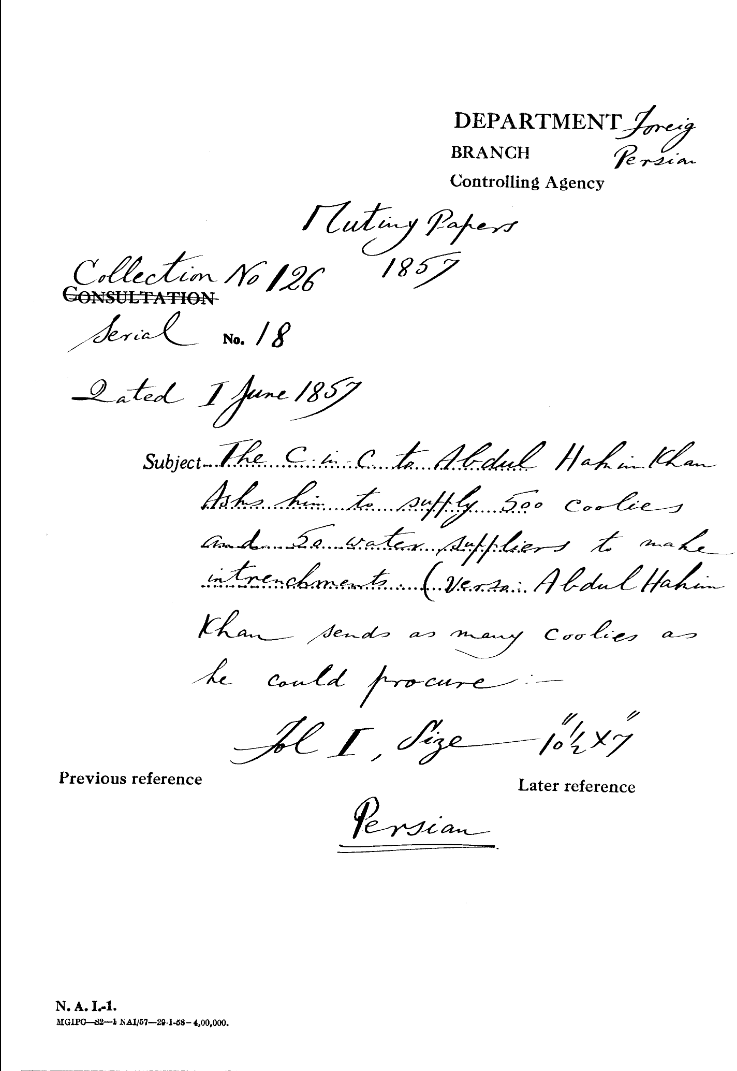 DEPARTMENT Foreig
BRANCH Persian
Controlling Agency
Mutiny Papers
1857
Collection No 126
CONSULTATION
Serial No. 18
Dated I June 1857
Subject The C in C to Abdul Hakim Khan
Asks him to supply 500 coolies
and 50 water suppliers to make
intrenchments. (Verso: Abdul Hakim
Khan sends as many coolies as
he could procure :—
Fol I, Size — 10½" x 7"
Previous reference
Later reference
Persian
N. A. I.-1.
MGIPC—S2—1 NAI/57—29-1-58—4,00,000.